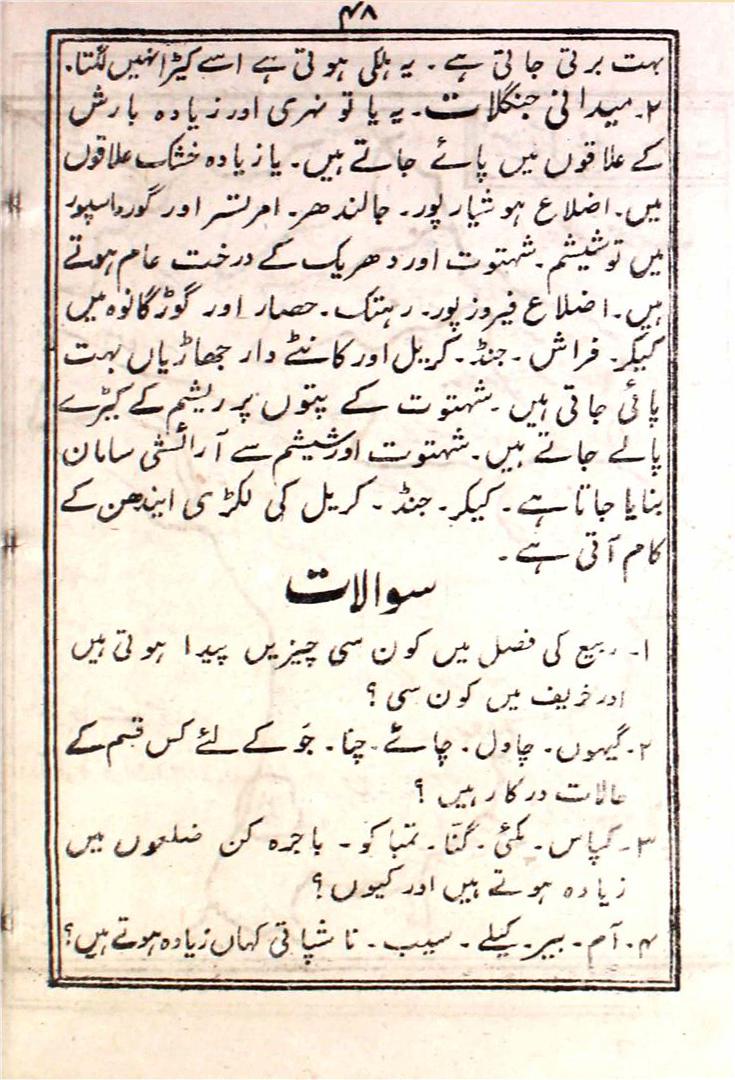 ۴۸
بہت برتی جاتی ہے۔ یہ ہلکی ہوتی ہے اسے کیڑا نہیں لگتا۔
۲۔ میدانی جنگلات۔ یہ یا تو نہری اور زیادہ بارش
کے علاقوں میں پائے جاتے ہیں۔ یا زیادہ خشک علاقوں
میں۔ اضلاع ہوشیارپور۔ جالندھر۔ امرتسر اور گورداسپور
میں توشیشم۔ شہتوت اور دھریک کے درخت عام ہوتے
ہیں۔ اضلاع فیروزپور۔ رہتک۔ حصار اور گوڑگانوہ میں
کیکر۔ فراش۔ جنڈ۔ کریل اور کانٹے دار جھاڑیاں بہت
پائی جاتی ہیں۔ شہتوت کے پتوں پر ریشم کے کیڑے
پالے جاتے ہیں۔ شہتوت اورشیشم سے آرائشی سامان
بنایا جاتا ہے۔ کیکر۔ جنڈ۔ کریل کی لکڑی ایندھن کے
کام آتی ہے۔
سوالات
۱۔ ربیع کی فصل میں کون سی چیزیں پیدا ہوتی ہیں
اور خریف میں کون سی؟
۲۔ گیہوں۔ چاول۔ چائے۔ چنا۔ جَو کے لئے کس قسم کے
حالات درکار ہیں؟
۳۔ کپاس۔ مکئی۔ گنّا۔ تمباکو۔ باجرہ کن ضلعوں میں
زیادہ ہوتے ہیں اور کیوں؟
۴۔ آم۔ بیر۔ کیلے۔ سیب۔ ناشپاتی کہاں زیادہ ہوتے ہیں؟